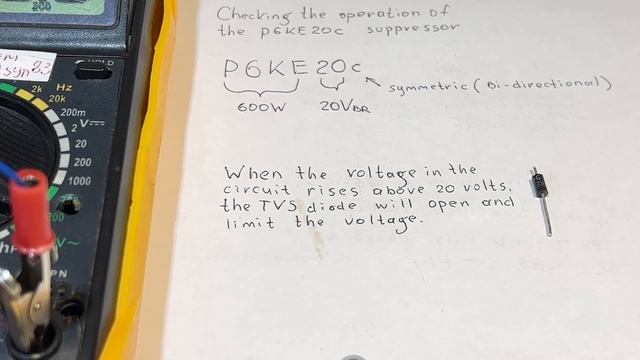 Checking the operation of
the P6KE20c suppressor
P6KE20c
symmetric (Bi-directional)
600W 20VBR
When the voltage in the
circuit rises above 20 volts,
the TVS diode will open and
limit the voltage.
200
HOLD
Hz
2k
20k
200m
2 V
20
200
1000
200
V~
PN